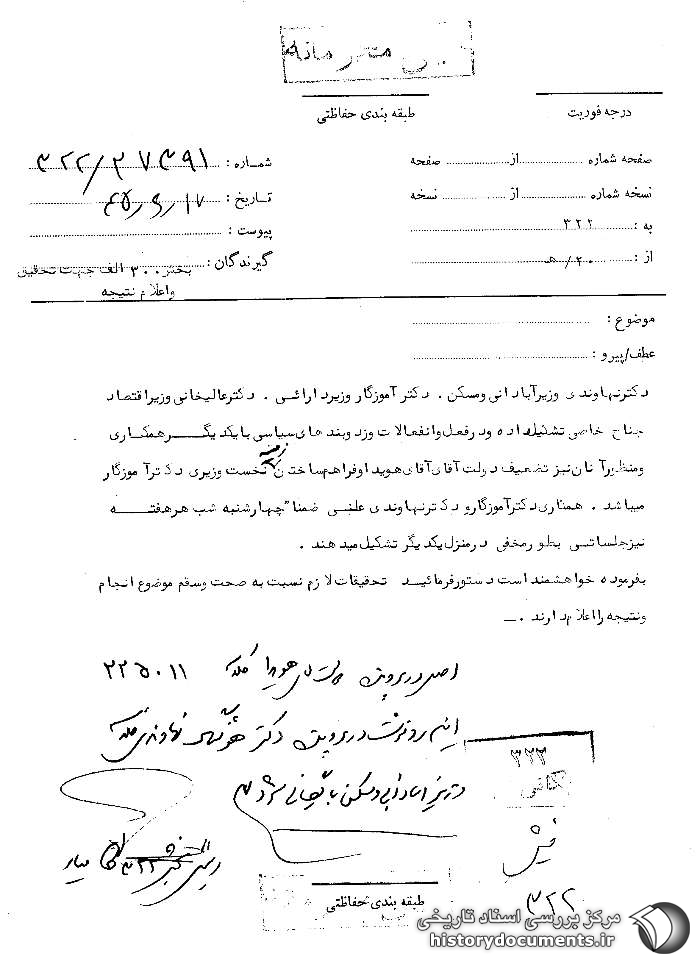 درجه فوریت
طبقه بندی حفاظتی
صفحه شماره از صفحه
شماره : ۳۲۲/۳۷۳۹۱
نسخه شماره از نسخه
تاریخ : ۴۵/۹/۱۷
به : ۳۲۲
پیوست :
از : ۲۰/ه
گیرندگان : بخش ۳۰۰ الف جهت تحقیق
واعلام نتیجه
موضوع :
عطف/پیرو :
دکترنهاوندی وزیرآبادانی ومسکن . دکتر آموزگار وزیردارائی . دکترعالیخانی وزیراقتصاد
جناح خاصی تشکیل داده ودرفعل وانفعالات وزدوبندهای سیاسی بایکدیگر همکاری
ومنظورآنان نیز تضعیف دولت آقای هویدا وفراهم ساختن زمینه نخست وزیری دکترآموزگار
میباشد . همکاری دکترآموزگارو دکترنهاوندی علنی ضمنا" چهارشنبه شب هرهفته
نیزجلساتی بطورمخفی درمنزل یکدیگر تشکیل میدهند .
بفرموده خواهشمند است دستورفرمائید تحقیقات لازم نسبت به صحت وسقم موضوع انجام
ونتیجه رااعلام دارند .
اصل در پرونده هویدا ۲۲۵۰۱۱
این رونوشت در پرونده دکتر هوشنگ نهاوندی
وزیر آبادانی ومسکن بایگانی شود
۳۲۲
بایگانی
فیش
۳۲۲
طبقه بندی حفاظتی
مرکز بررسی اسناد تاریخی
historydocuments.ir